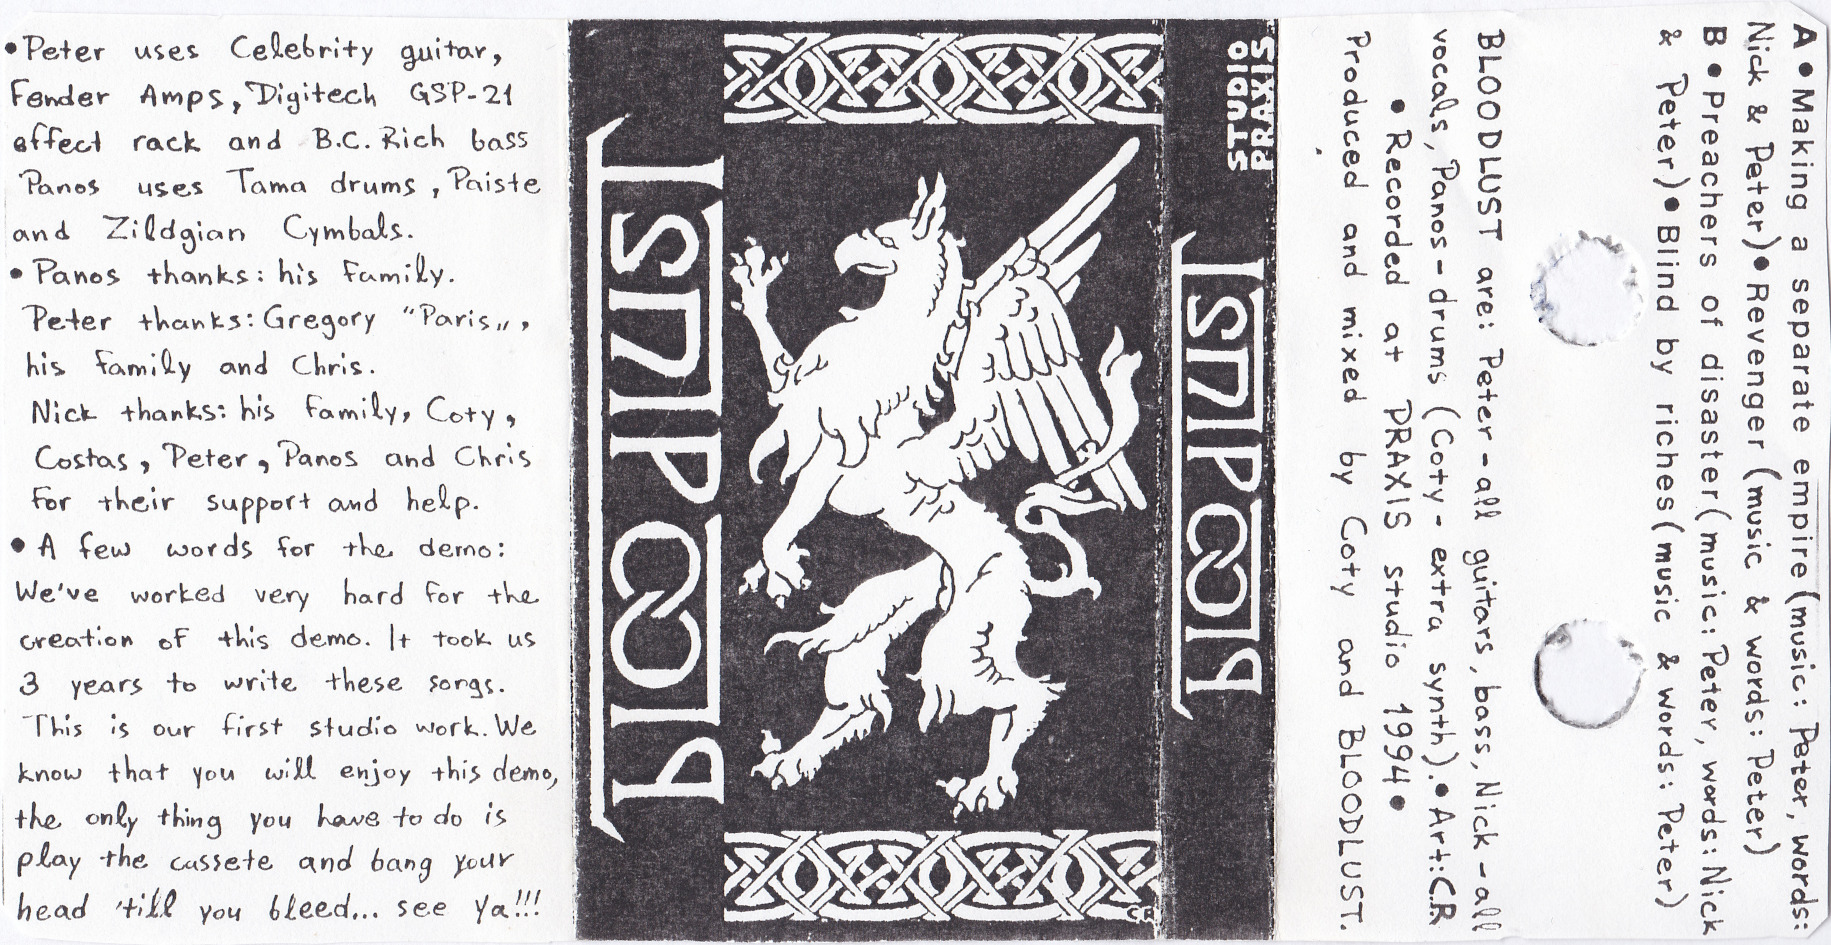 •Peter uses Celebrity guitar,
Fender Amps, Digitech GSP-21
effect rack and B.C. Rich bass
Panos uses Tama drums, Paiste
and Zildgian Cymbals.
• Panos thanks: his family.
Peter thanks: Gregory “Paris„,
his family and Chris.
Nick thanks: his family, Coty,
Costas, Peter, Panos and Chris
for their support and help.
• A few words for the demo:
We've worked very hard for the
creation of this demo. It took us
3 years to write these songs.
This is our first studio work. We
know that you will enjoy this demo,
the only thing you have to do is
play the cassete and bang your
head 'till you bleed... see ya!!!
CR
STUDIO
PRAXIS
A • Making a separate empire (music: Peter, words:
Nick & Peter) • Revenger (music & words: Peter)
B • Preachers of disaster (music: Peter, words: Nick
& Peter) • Blind by riches (music & words: Peter)
BLOODLUST are: Peter - all guitars, bass, Nick - all
vocals, Panos - drums (Coty - extra synth). • Art: C.R
• Recorded at PRAXIS studio 1994 •
Produced and mixed by Coty and BLOODLUST.